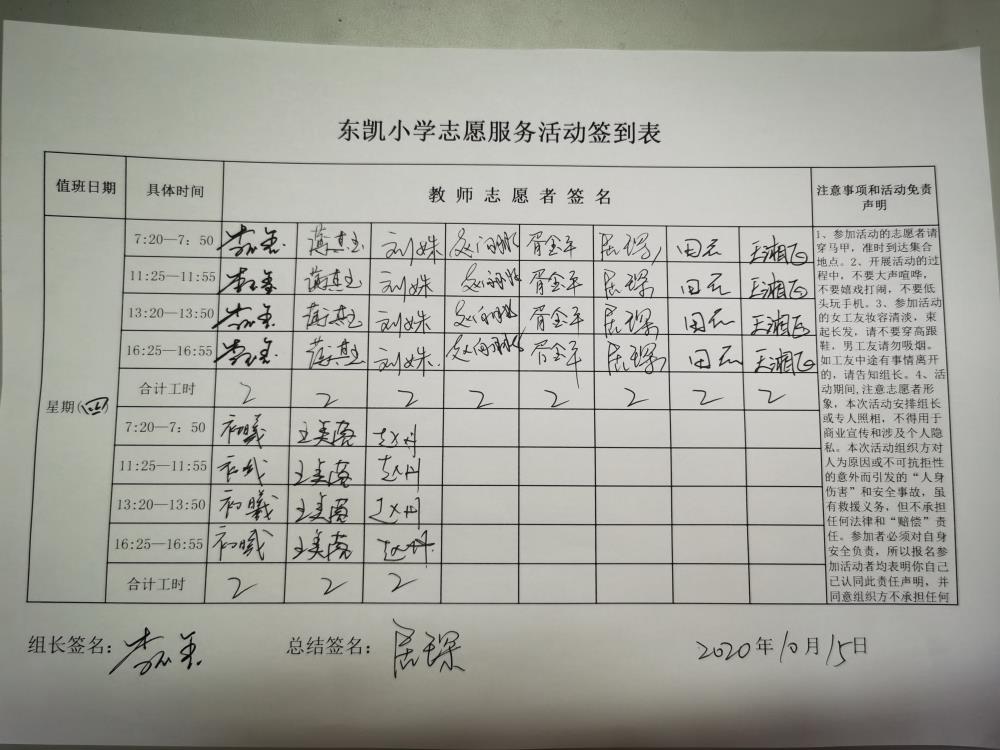 东凯小学志愿服务活动签到表
值班日期 具体时间 教师志愿者签名 注意事项和活动免责声明
星期(四)
7:20—7：50 刘姝 胥金平 屈琛 田元 王湘飞
11:25—11:55 刘姝 胥金平 屈琛 田元 王湘飞
13:20—13:50 刘姝 胥金平 屈琛 田元 王湘飞
16:25—16:55 刘姝 胥金平 屈琛 田元 王湘飞
合计工时 2 2 2 2 2 2 2 2
7:20—7：50 初曦
11:25—11:55 初曦
13:20—13:50 初曦
16:25—16:55 初曦
合计工时 2 2 2
1、参加活动的志愿者请
穿马甲，准时到达集合
地点。2、开展活动的过
程中，不要大声喧哗，
不要嬉戏打闹，不要低
头玩手机。3、参加活动
的女工友妆容清淡，束
起长发，请不要穿高跟
鞋，男工友请勿吸烟。
如工友中途有事情离开
的，请告知组长。4、活
动期间,注意志愿者形
象，本次活动安排组长
或专人照相，不得用于
商业宣传和涉及个人隐
私。本次活动组织方对
人为原因或不可抗拒性
的意外而引发的“人身
伤害”和安全事故，虽
有救援义务，但不承担
任何法律和“赔偿”责
任。参加者必须对自身
安全负责，所以报名参
加活动者均表明你自己
己认同此责任声明，并
同意组织方不承担任何
组长签名： 总结签名：屈琛 2020年10月15日